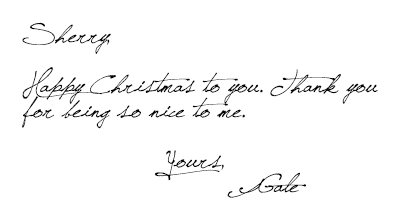 Sherry,
Happy Christmas to you. Thank you
for being so nice to me.
Yours,
Gale